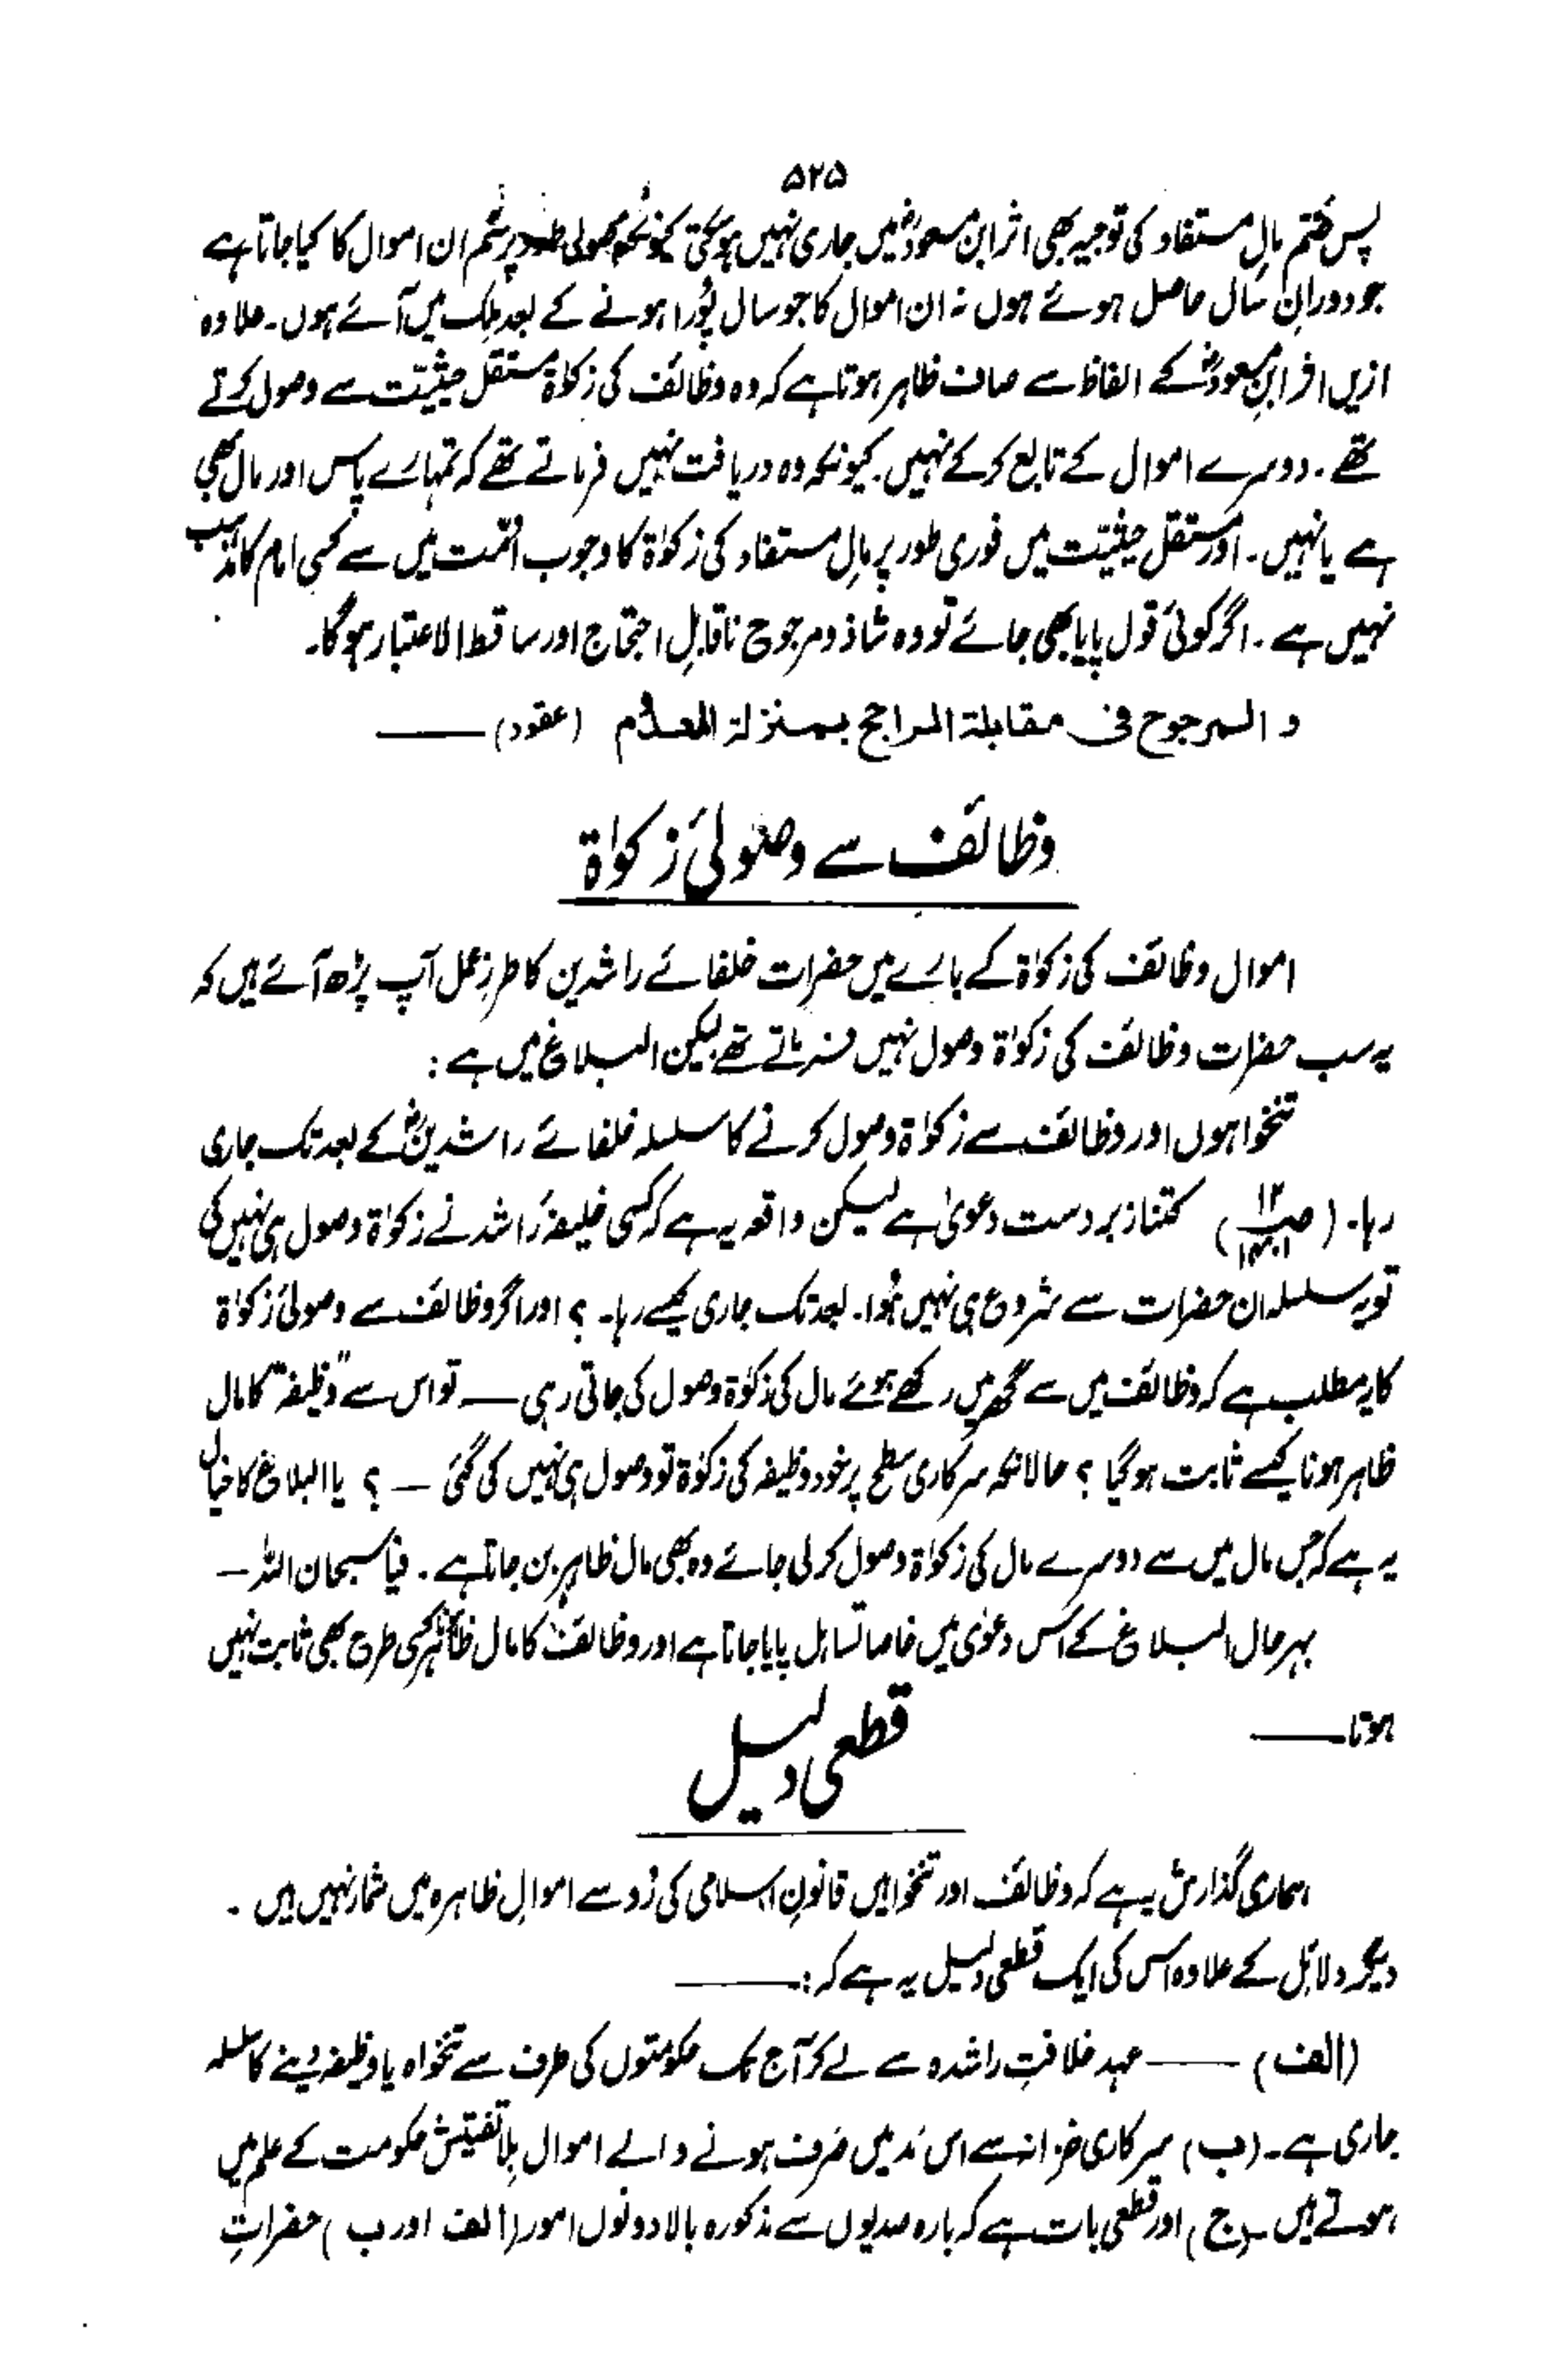 ۵۲۵
پس ضم مالِ مستفاد کی توجیہ بھی اثر ابن مسعودؓ میں جاری نہیں ہوسکتی کیونکہ معمولی طور پر ضم ان اموال کا کیا جاتا ہے
جو دورانِ سال حاصل ہوئے ہوں نہ ان اموال کا جو سال پُورا ہونے کے بعد ملک میں آئے ہوں۔ علاوہ
ازیں اثر ابنِ مسعودؓ کے الفاظ سے صاف ظاہر ہوتا ہے کہ وہ وظائف کی زکوٰۃ مستقل حیثیّت سے وصول کرتے
تھے۔ دوسرے اموال کے تابع کر کے نہیں۔ کیونکہ وہ دریافت نہیں فرماتے تھے کہ تمہارے پاس اور مال بھی
ہے یا نہیں۔ اور مستقل حیثیّت میں فوری طور پر مالِ مستفاد کی زکوٰۃ کا وجوب ائمّت میں سے کسی امام کا مذہب
نہیں ہے۔ اگر کوئی قول پایا بھی جائے تو وہ شاذ و مرجوح ناقابلِ احتجاج اور ساقط الاعتبار ہوگا۔
و المرجوح فی مقابلۃ الراجح بمنزلۃ المعدوم (عقود) ——
وظائف سے وصولیٔ زکوٰۃ
اموال وظائف کی زکوٰۃ کے بارے میں حضرات خلفائے راشدین کا طرزِ عمل آپ پڑھ آئے ہیں کہ
یہ سب حضرات وظائف کی زکوٰۃ وصول نہیں فرماتے تھے لیکن البلاغ میں ہے :
تنخواہوں اور وظائف سے زکوٰۃ وصول کرنے کا سلسلہ خلفائے راشدینؓ کے بعد تک جاری
رہا۔ ( ) کتنا زبردست دعویٰ ہے لیکن واقعہ یہ ہے کہ کسی خلیفۂ راشد نے زکوٰۃ وصول ہی نہیں کی
تو یہ سلسلہ ان حضرات سے شروع ہی نہیں ہُوا۔ بعد تک جاری کیسے رہا۔ ؟ اور اگر وظائف سے وصولیٔ زکوٰۃ
کا یہ مطلب ہے کہ وظائف میں سے گھر میں رکھے ہوئے مال کی زکوٰۃ وصول کی جاتی رہی — تو اس سے "وظیفہ" کا مال
ظاہر ہونا کیسے ثابت ہوگیا ؟ حالانکہ سرکاری سطح پر خود وظیفہ کی زکوٰۃ تو وصول ہی نہیں کی گئی — ؟ یا البلاغ کا خیال
یہ ہے کہ جس مال میں سے دوسرے مال کی زکوٰۃ وصول کر لی جائے وہ بھی مال ظاہر بن جاتا ہے۔ فیا سبحان اللہ —
بہر حال البلاغ کے اس دعوٰی میں خاصا تساہل پایا جاتا ہے اور وظائف کا مال ظاہر ہونا کسی طرح بھی ثابت نہیں
ہوتا ——
قطعی دلیل
ہماری گذارش یہ ہے کہ وظائف اور تنخواہیں قانونِ اسلامی کی رُو سے اموالِ ظاہرہ میں شمار نہیں ہیں ۔
دیگر دلائل کے علاوہ اس کی ایک قطعی دلیل یہ ہے کہ : ——
(الف) —— عہد خلافتِ راشدہ سے لے کر آج تک حکومتوں کی طرف سے تنخواہ یا وظیفہ دینے کا سلسلہ
جاری ہے۔ (ب) سرکاری خزانہ سے اس مَد میں صَرف ہونے والے اموال بلا تفتیش حکومت کے علم میں
ہوتے ہیں۔ (ج) اور قطعی بات ہے کہ بارہ صدیوں سے مذکورہ بالا دونوں امور (الف اور ب) حضراتِ